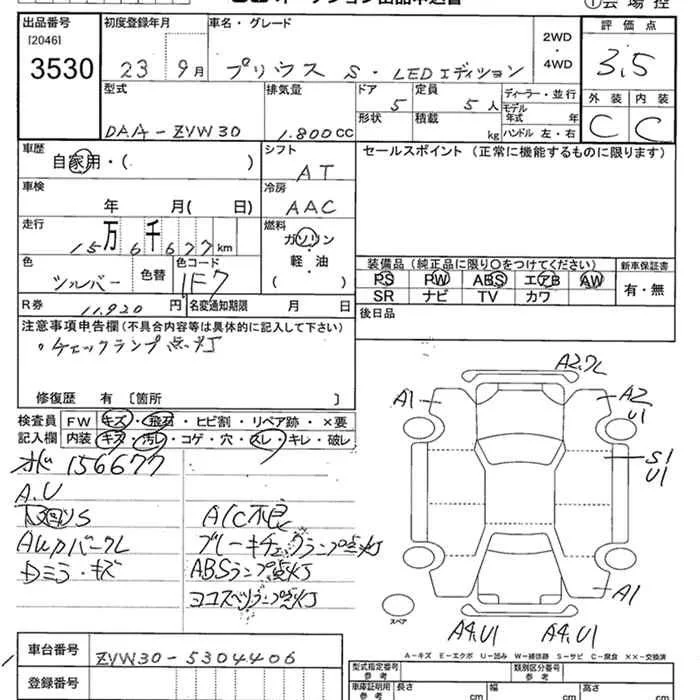 ①会場控
出品番号
[2046]
3530
初度登録年月
23 9月
車名・グレード
プリウス S・LEDエディション
2WD
・
4WD
評価点
3.5
外装 内装
C C
型式
DAA-ZVW30
排気量
1.800cc
ドア
5
定員
5人
形状
積載
kg
ディーラー・並行
モデル
年式 年
ハンドル 左・右
車歴
自家用・( )
シフト
AT
セールスポイント (正常に機能するものに限ります)
車検
年 月( 日)
冷房
AAC
走行
15万6千677km
燃料
ガソリン
軽・油
( )
色
シルバー
色替
色コード
1F7
装備品 (純正品に限り○をつけてください)
PS PW ABS エアB AW
SR ナビ TV カワ
新車保証書
有・無
R券
11,920円
名変通知期限 月 日
後日品
注意事項申告欄 (不具合内容等は具体的に記入して下さい)
・チェックランプ点灯
修復歴 有 〔箇所 〕
検査員
記入欄
FW キズ・飛石・ヒビ割・リペア跡・×要
内装 キズ・汚レ・コゲ・穴・スレ・キレ・破レ
156677
A.U
A/C不良
ブレーキチェックランプ点灯
Dミラ・キズ
ABSランプ点灯
ヨコスベリランプ点灯
A2.L
A1
A2
U1
S1
U1
A1
A4.U1 A4.U1
スペア
A-キズ E-エクボ U-凹み W-補修跡 S-サビ C-腐食 ××-交換済
車台番号
ZVW30-5304406
登録番号
型式指定番号
参考
類別区分番号
参考
車庫証明用
参考
長さ
cm
幅
cm
高さ
cm